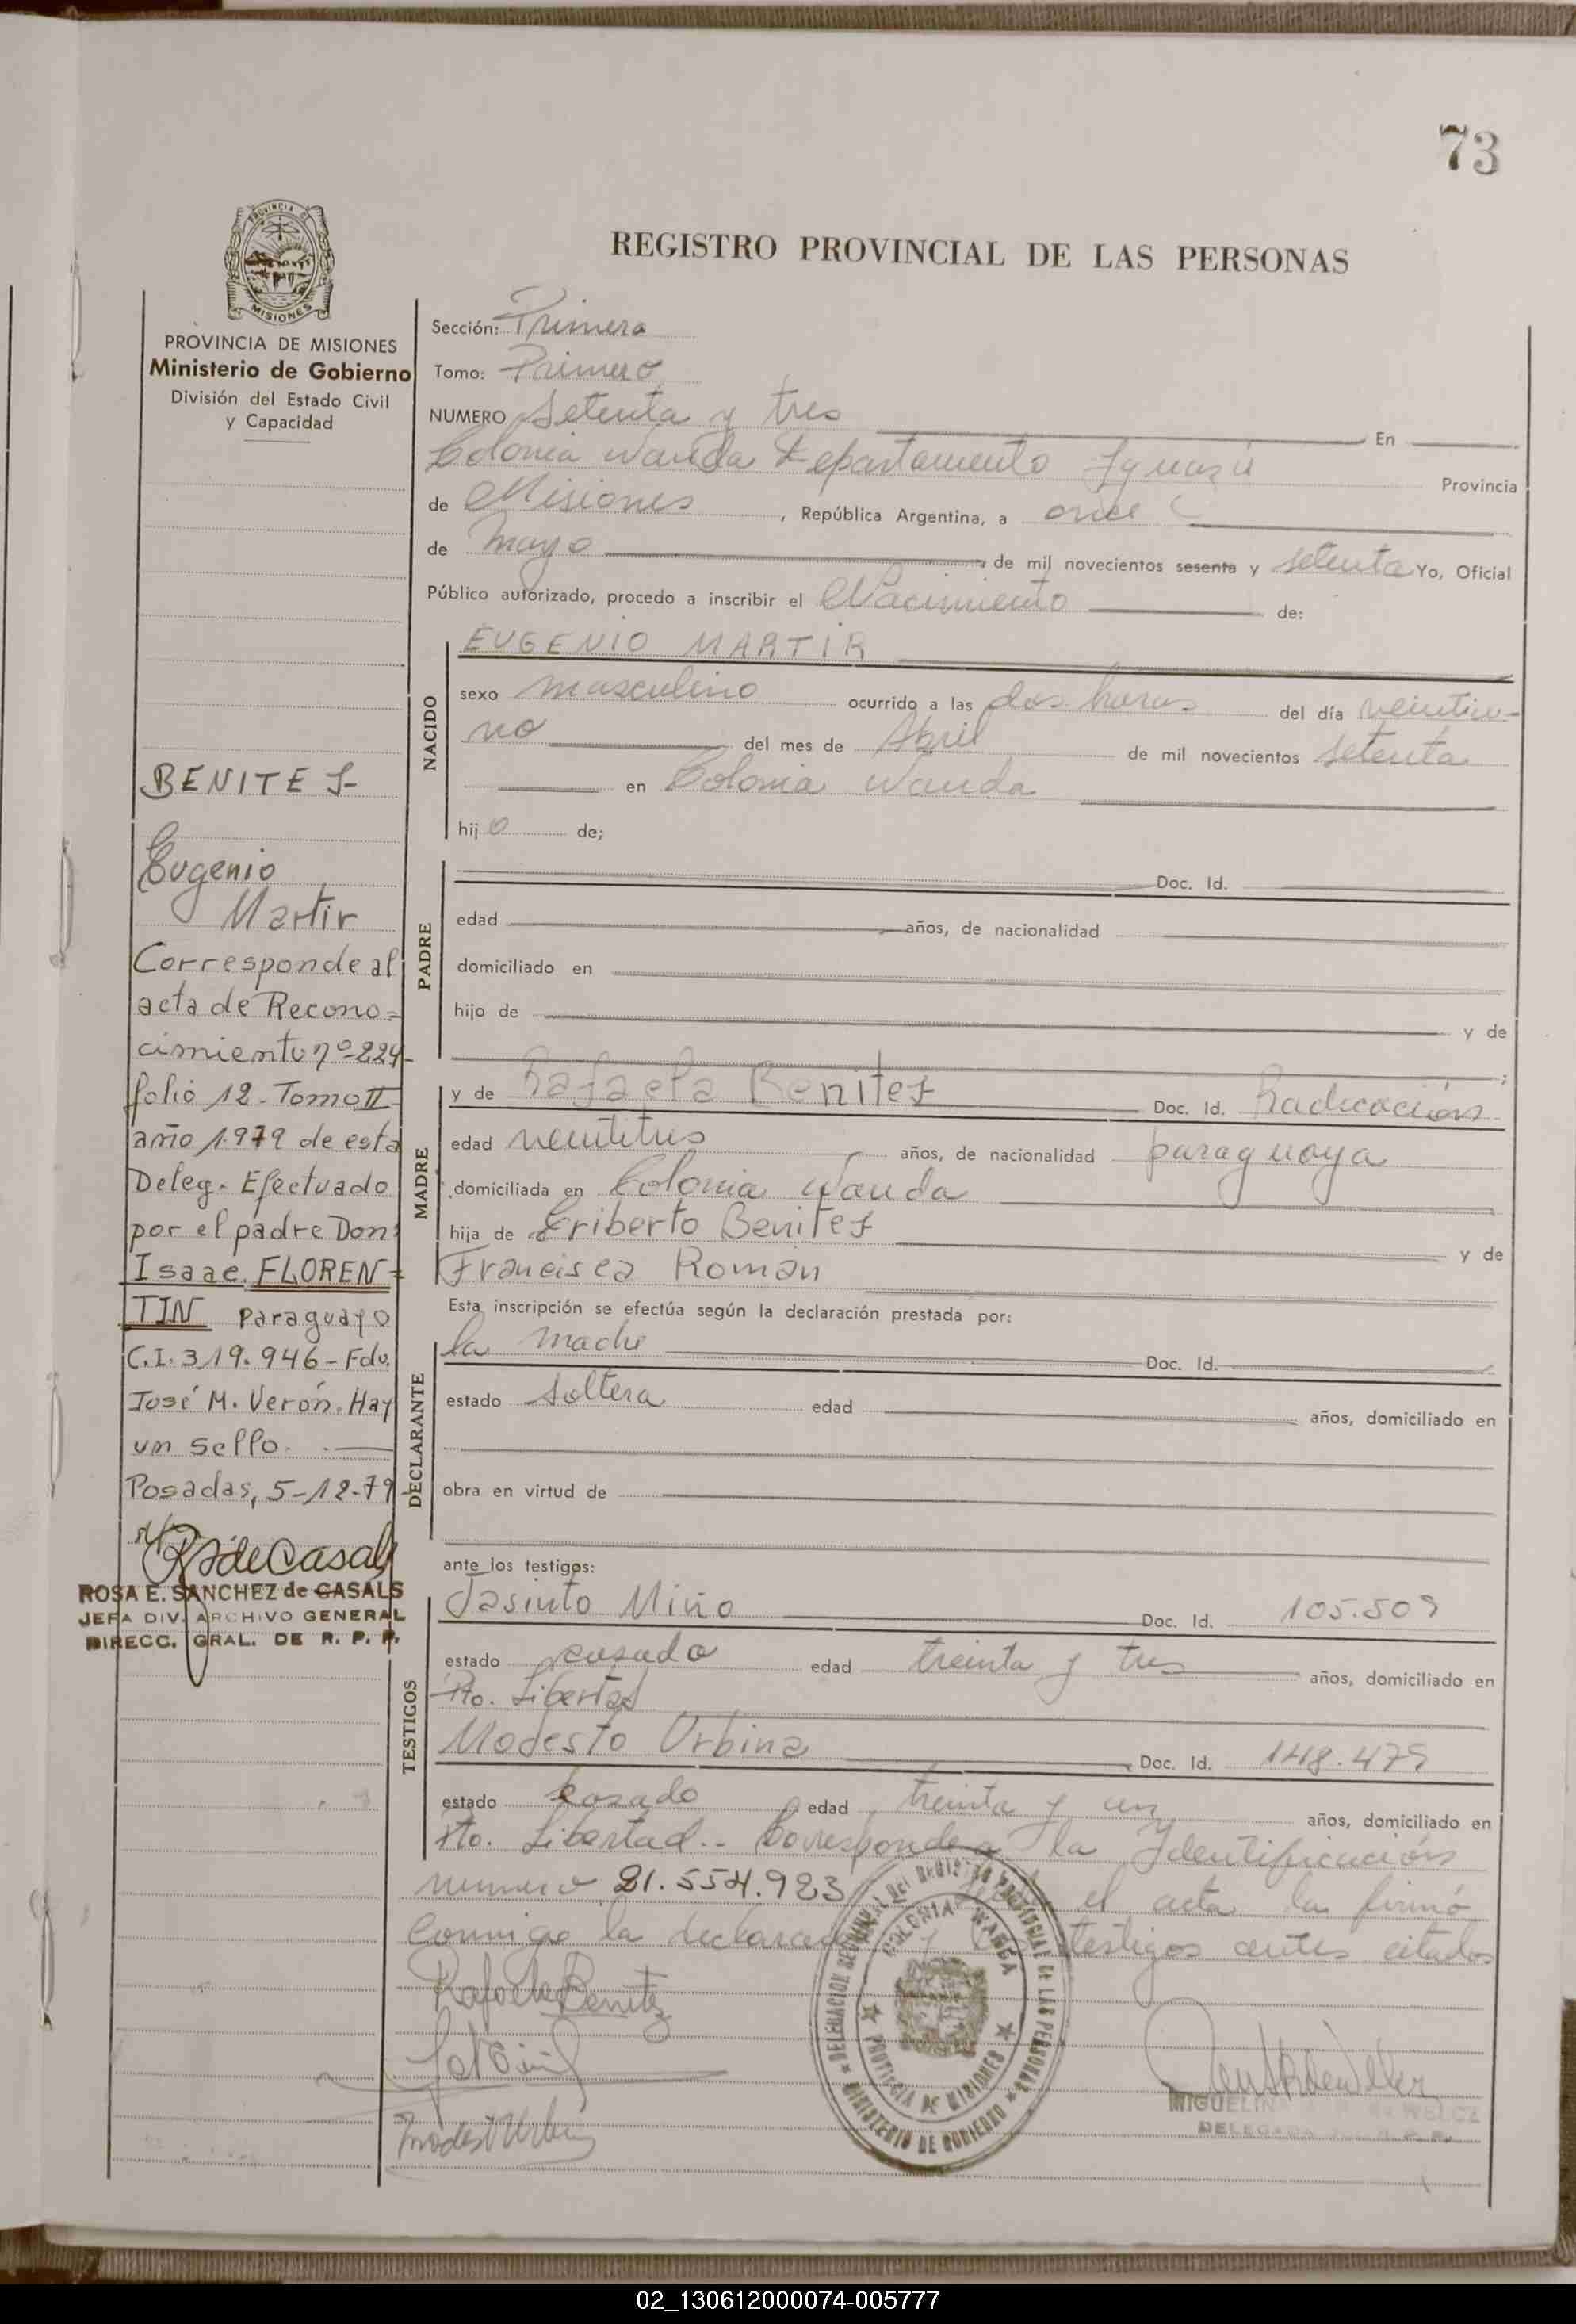 73
PROVINCIA DE
MISIONES
REGISTRO PROVINCIAL DE LAS PERSONAS
PROVINCIA DE MISIONES
Ministerio de Gobierno
División del Estado Civil
y Capacidad
Sección: Primera
Tomo: Primero
NUMERO Setenta y tres En
Colonia Wanda Departamento Iguazú Provincia
de Misiones, República Argentina, a once
de Mayo de mil novecientos sesenta y setenta Yo, Oficial
Público autorizado, procedo a inscribir el Nacimiento de:
NACIDO
EUGENIO MARTIR
sexo masculino ocurrido a las dos horas del día veintiu-
no del mes de Abril de mil novecientos setenta
en Colonia Wanda
hijo de;
PADRE
Doc. Id.
edad años, de nacionalidad
domiciliado en
hijo de y de
;
MADRE
y de Rafaela Benitez Doc. Id. Radicación
edad veintitres años, de nacionalidad paraguaya
domiciliada en Colonia Wanda
hija de Eriberto Benitez y de
Francisca Román
Esta inscripción se efectúa según la declaración prestada por:
DECLARANTE
la madre Doc. Id.
estado Soltera edad años, domiciliado en
obra en virtud de
ante los testigos:
TESTIGOS
Jasinto Miño Doc. Id. 105.509
estado casado edad treinta y tres años, domiciliado en
Pto. Libertad
Modesto Urbina Doc. Id. 148.479
estado casado edad treinta y un años, domiciliado en
Pto. Libertad.- Corresponde a la Identificación
numero 21.554.983 el acta la firmó
conmigo la declarante y los testigos antes citados
Rafaela Benitez
Modest Urbin
BENITEZ-
Eugenio
Martir
Corresponde al
acta de Recono=
cimiento nº 224-
folio 12-Tomo II-
año 1.979 de esta
Deleg. Efectuado
por el padre Don:
Isaac FLOREN=
TIN paraguayo
C.I. 319.946-Fdo.
José M. Verón. Hay
un sello.
Posadas, 5-12-79
R S de Casals
ROSA E. SANCHEZ de CASALS
JEFA DIV. ARCHIVO GENERAL
DIRECC. GRAL. DE R. P. P.
DELEGACION SECCIONAL DEL REGISTRO PROVINCIAL DE LAS PERSONAS
MINISTERIO DE GOBIERNO
COLONIA WANDA
PROVINCIA DE MISIONES
02_130612000074-005777